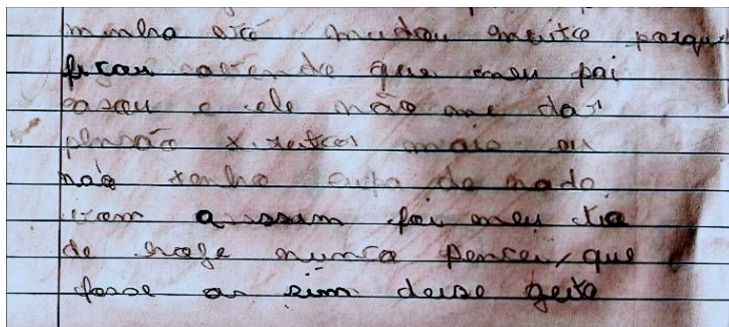 minha avó mudou muito porque
ficou sabendo que meu pai
casou e ele não me dar
pensão mais eu
não tenho cupa de nada
bom assim foi meu dia
de hoge nunca pencei, que
fosse as sim desse geito